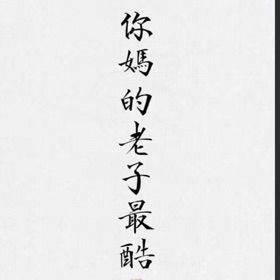 你媽的老子最酷